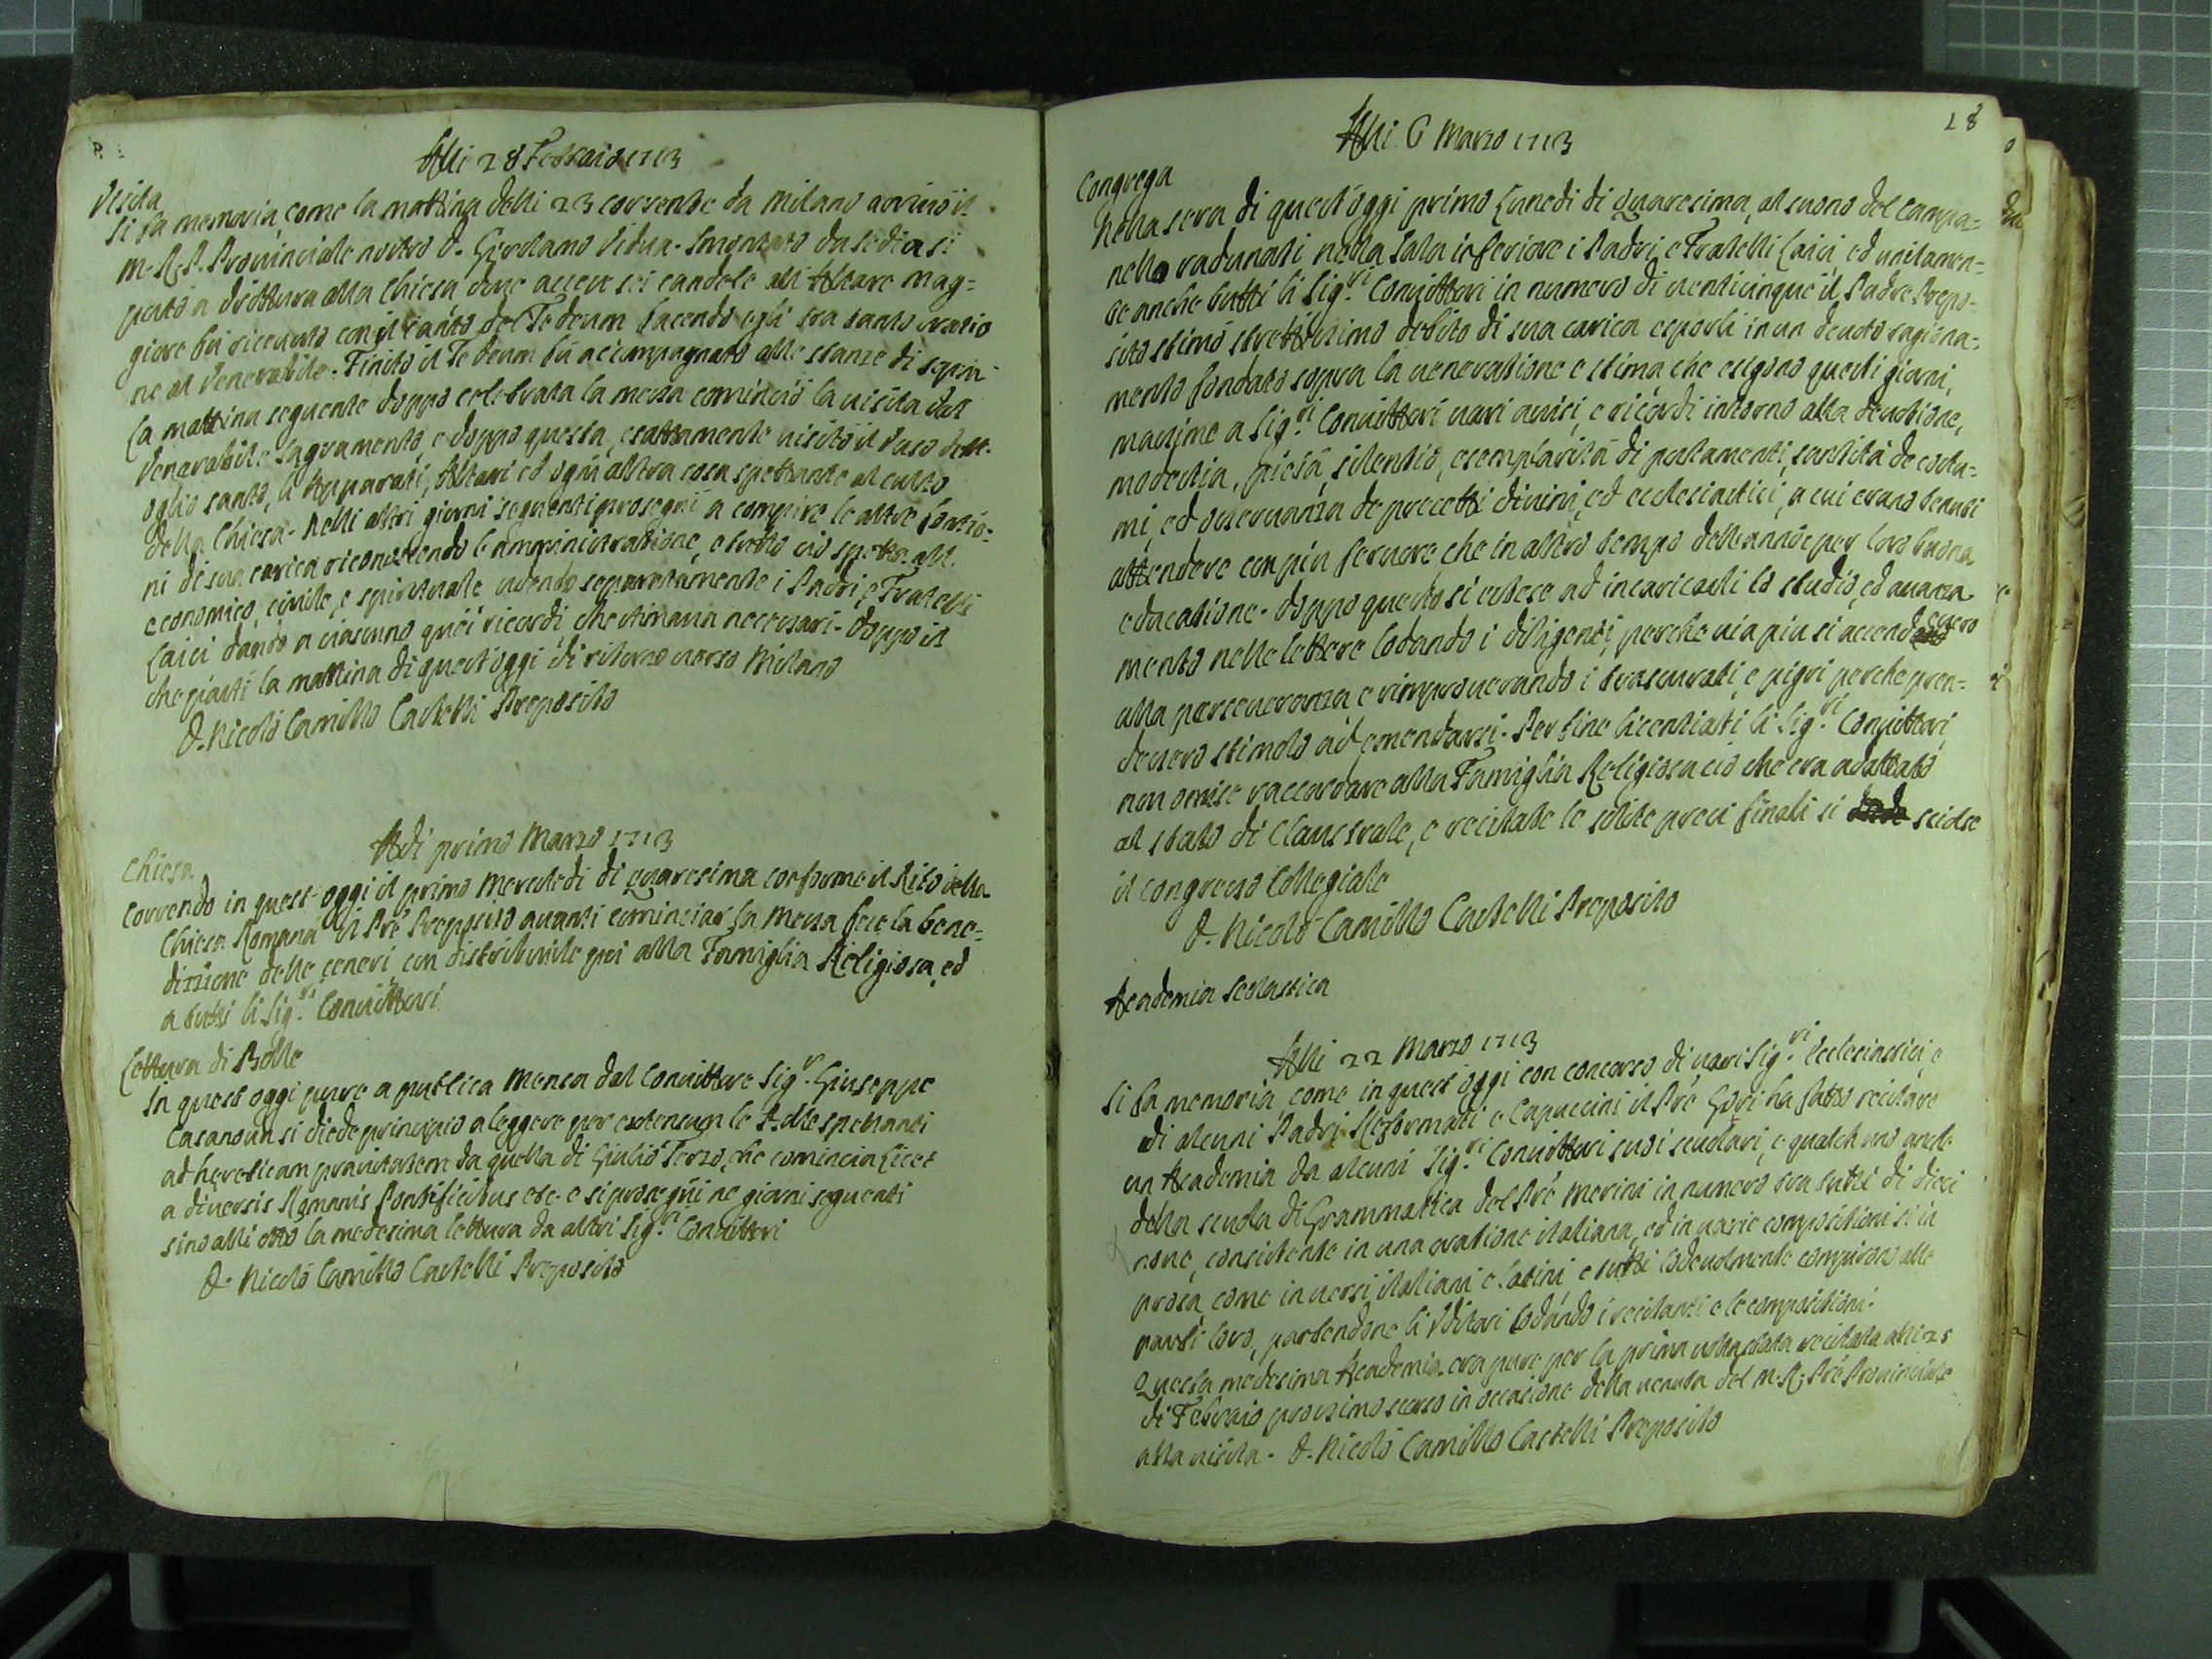 Alli 28 Febraio 1713
Visita
Si fa memoria, come la mattina delli 23 corrente da Milano arrivò il
M. R. P. Provinciale nostro D. Girolamo Vidua. Smontato da sedia si
portò a drittura alla Chiesa dove accese sei candele all'Altare mag=
giore fù ricevuto con il canto del Te deum facendo egli sua santa oratio
ne al Venerabile. Finito il Te deum fù accompagnato alle stanze di sopra
La mattina seguente doppo celebrata la messa cominciò la visita dal
Venerabile Sagramento, e doppo questa, esattamente visitò il Vaso dell'
oglio santo, li Apparati, Altari ed ogni altra cosa spettante al culto
della Chiesa. Nelli altri giorni seguenti proseguì a compire le altre fontio=
ni di sua carica riconoscendo l'amministratione, e tutto ciò spetta all'
economico, civile, e spirituale udendo separatamente i Padri, e Fratelli
Laici dando a ciascuno quei ricordi che stimava necessari. Doppo il
che partì la mattina di quest'oggi di ritorno verso Milano
D. Nicolò Camillo Castelli Preposito
Adi primo Marzo 1713
Chiesa
Correndo in quest'oggi il primo Mercoledi di Quaresima conforme il Rito della
Chiesa Romana il Prè Preposito avanti cominciar la Messa fece la bene=
dizzione delle ceneri, con distribuirle poi alla Famiglia Religiosa, ed
a tutti li Sig.ri Convittori
Lettura di Bolle
In quest'oggi pure a publica Mensa dal Convittore Sig.r Giuseppe
Casanova si diede principio a leggere per extensum le Bolle spettanti
ad hereticam pravitatem da quella di Giulio Terzo, che comincia Licet
a diversis Romanis Pontificibus etc. e si proseguì ne giorni seguenti
sino alli otto la medesima lettura da altri Sig.ri Convittori
D. Nicolò Camillo Castelli Preposito
28
Alli 6 Marzo 1713
Congrega
Nella sera di quest'oggi primo Lunedi di Quaresima, al suono del campa=
nello radunati nella Sala inferiore i Padri e Fratelli Laici ed unitamen=
te anche tutti li Sig.ri Convittori in numero di venticinque il Padre Prepo=
sito stimò strettissimo debito di sua carica esporli in un devoto ragiona=
mento fondato sopra la veneratione e stima, che esigono questi giorni,
massime a Sig.ri Convittori vari avisi, e ricordi intorno alla devotione,
modestia, pietà, silentio, esemplarità di portamenti, santità de costu=
mi, ed osservanza de precetti divini, ed ecclesiastici, a cui erano tenuti
attendere con più fervore che in altro tempo dell'anno e per loro buona
educatione. Doppo questo si estese ad incaricarli lo studio, ed avanza
mento nelle lettere lodando i diligenti, perche via più si accendessero
alla perseveranza e rimproverando i trascurati, e pigri perche pren=
dessero stimolo ad emendarsi. Per fine licentiati li Sig.ri Convittori
non omise raccordare alla Famiglia Religiosa ciò che era adattato
al stato di Claustrale, e recitate le solite preci finali si sciolse
il congresso Collegiale
D. Nicolò Camillo Castelli Preposito
Academia scolastica
Alli 22 Marzo 1713
Si fa memoria, come in quest'oggi con concorso di vari Sig.ri Ecclesiastici, e
di alcuni Padri Reformati e Capuccini il Prè Gori ha fatto recitare
un Academia da alcuni Sig.ri Convittori suoi scuolari, e qualch'uno anche
della scuola di Grammatica del Prè Merini in numero tra tutti di dieci
nove, consistente in una oratione italiana, ed in varie compositioni si in
prosa, come in versi italiani e latini, e tutti lodevolmente compirono alle
parti loro, partendone li Uditori lodando i recitanti e le compositioni.
Questa medesima Academia era pure per la prima volta stata recitata alli 25
di Febraio prossimo scorso in occasione della venuta del M. R. Prè Provinciale
alla visita. D. Nicolò Camillo Castelli Preposito